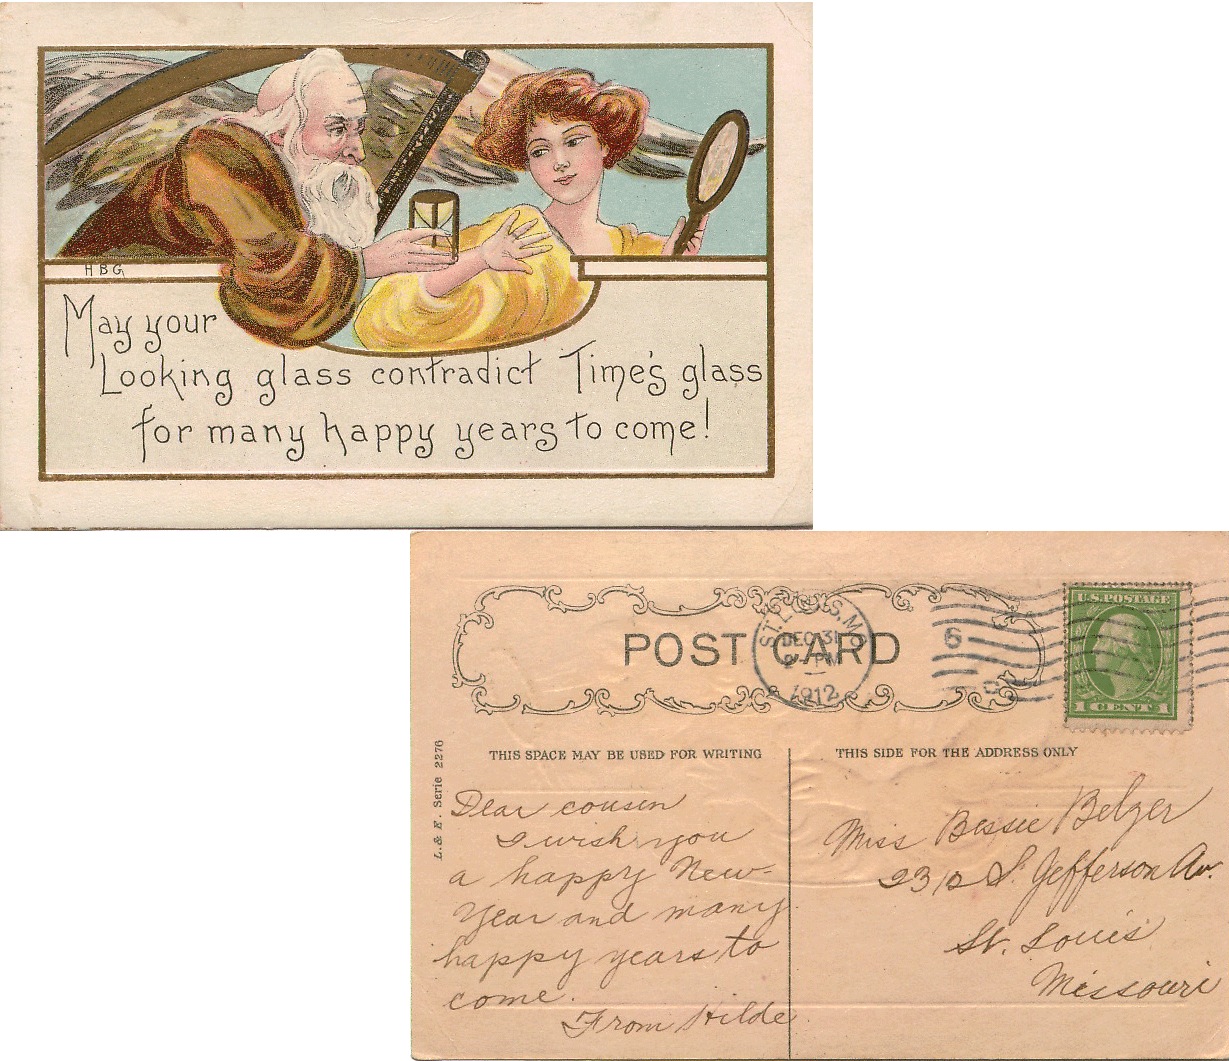 HBG
May your
Looking glass contradict Time's glass
for many happy years to come!
POST CARD
ST. LOUIS, MO.
DEC 31
PM
1912
6
U.S. POSTAGE
1 CENT 1
THIS SPACE MAY BE USED FOR WRITING
THIS SIDE FOR THE ADDRESS ONLY
L. & E. Serie 2276
Dear cousin
I wish you
a happy New-
Year and many
happy years to
come.
From Hilde
Miss Bessie Belzer
2312 S. Jefferson Av.
St. Louis
Missouri